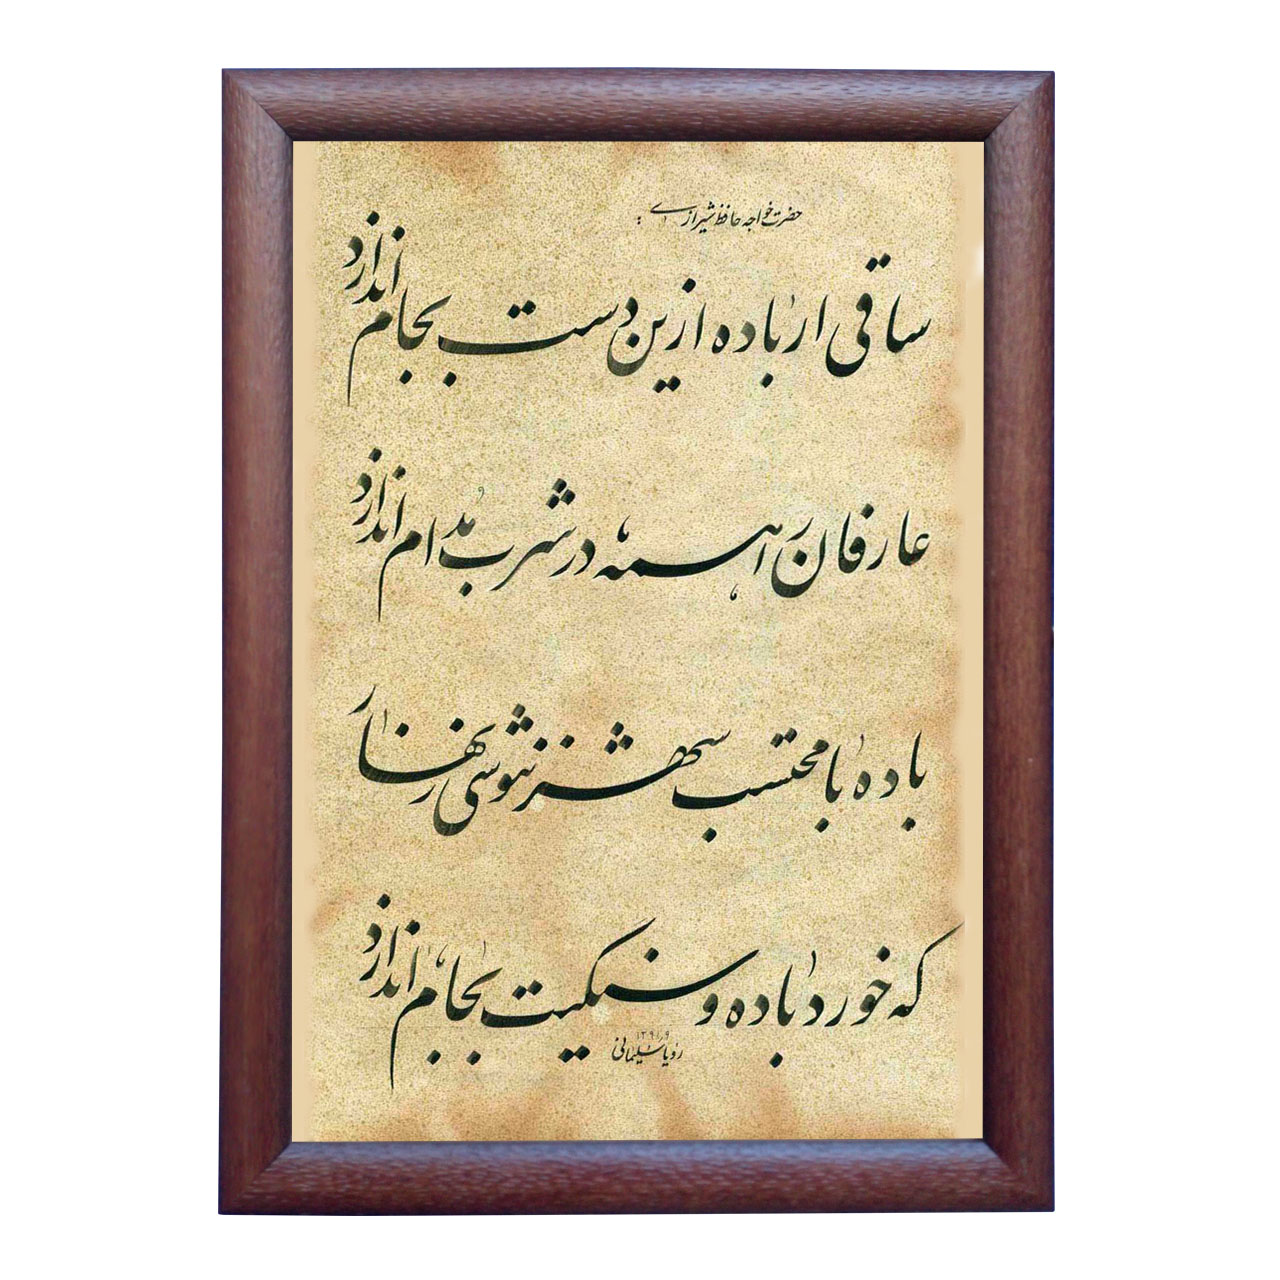 حضرت خواجه حافظ شیرازی :
ساقی ار باده ازین دست بجام اندازد
عارفان را همه در شرب مدام اندازد
باده با محتسب شهر ننوشی زنهار
که خورد باده و سنگیت بجام اندازد
رویا سلیمانی